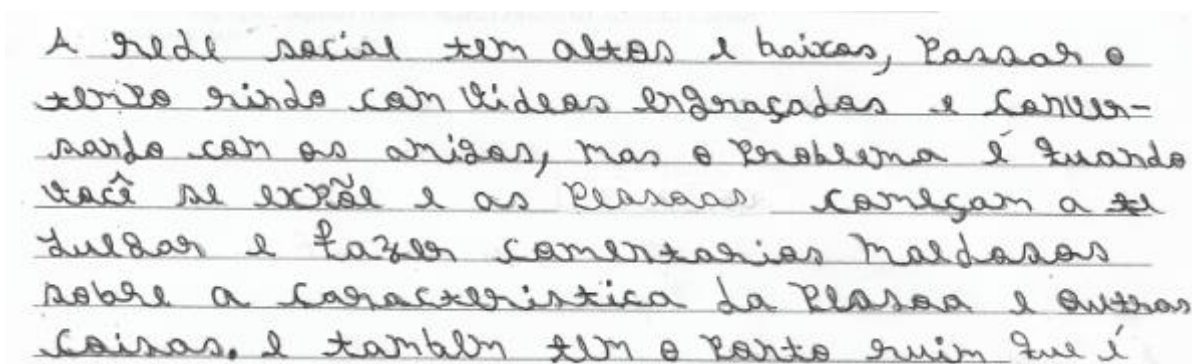 A rede social tem altos e baixos, Passar o
tempo rindo com Videos engraçados e Conver-
sando com os amigos, mas o Problema é quando
você se expõe e as Pessoas começam a te
Julgar e fazer comentarios maldosos
sobre a caracteristica da Pessoa e outras
Coisas. e tambem tem o Ponto ruim que é